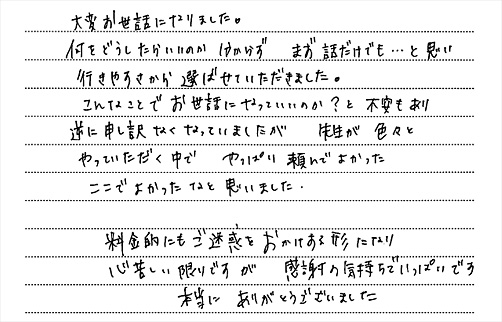 大変お世話になりました。
何をどうしたらいいのか分からず まず話だけでも…と思い
行きやすさから選ばせていただきました。
こんなことでお世話になっていいのか？と不安もあり
逆に申し訳なくなっていましたが 先生が色々と
やっていただく中で やっぱり頼んでよかった
ここでよかったなと思いました.
料金的にもご迷惑をおかけする形になり
心苦しい限りですが 感謝の気持ちでいっぱいです
本当にありがとうございました